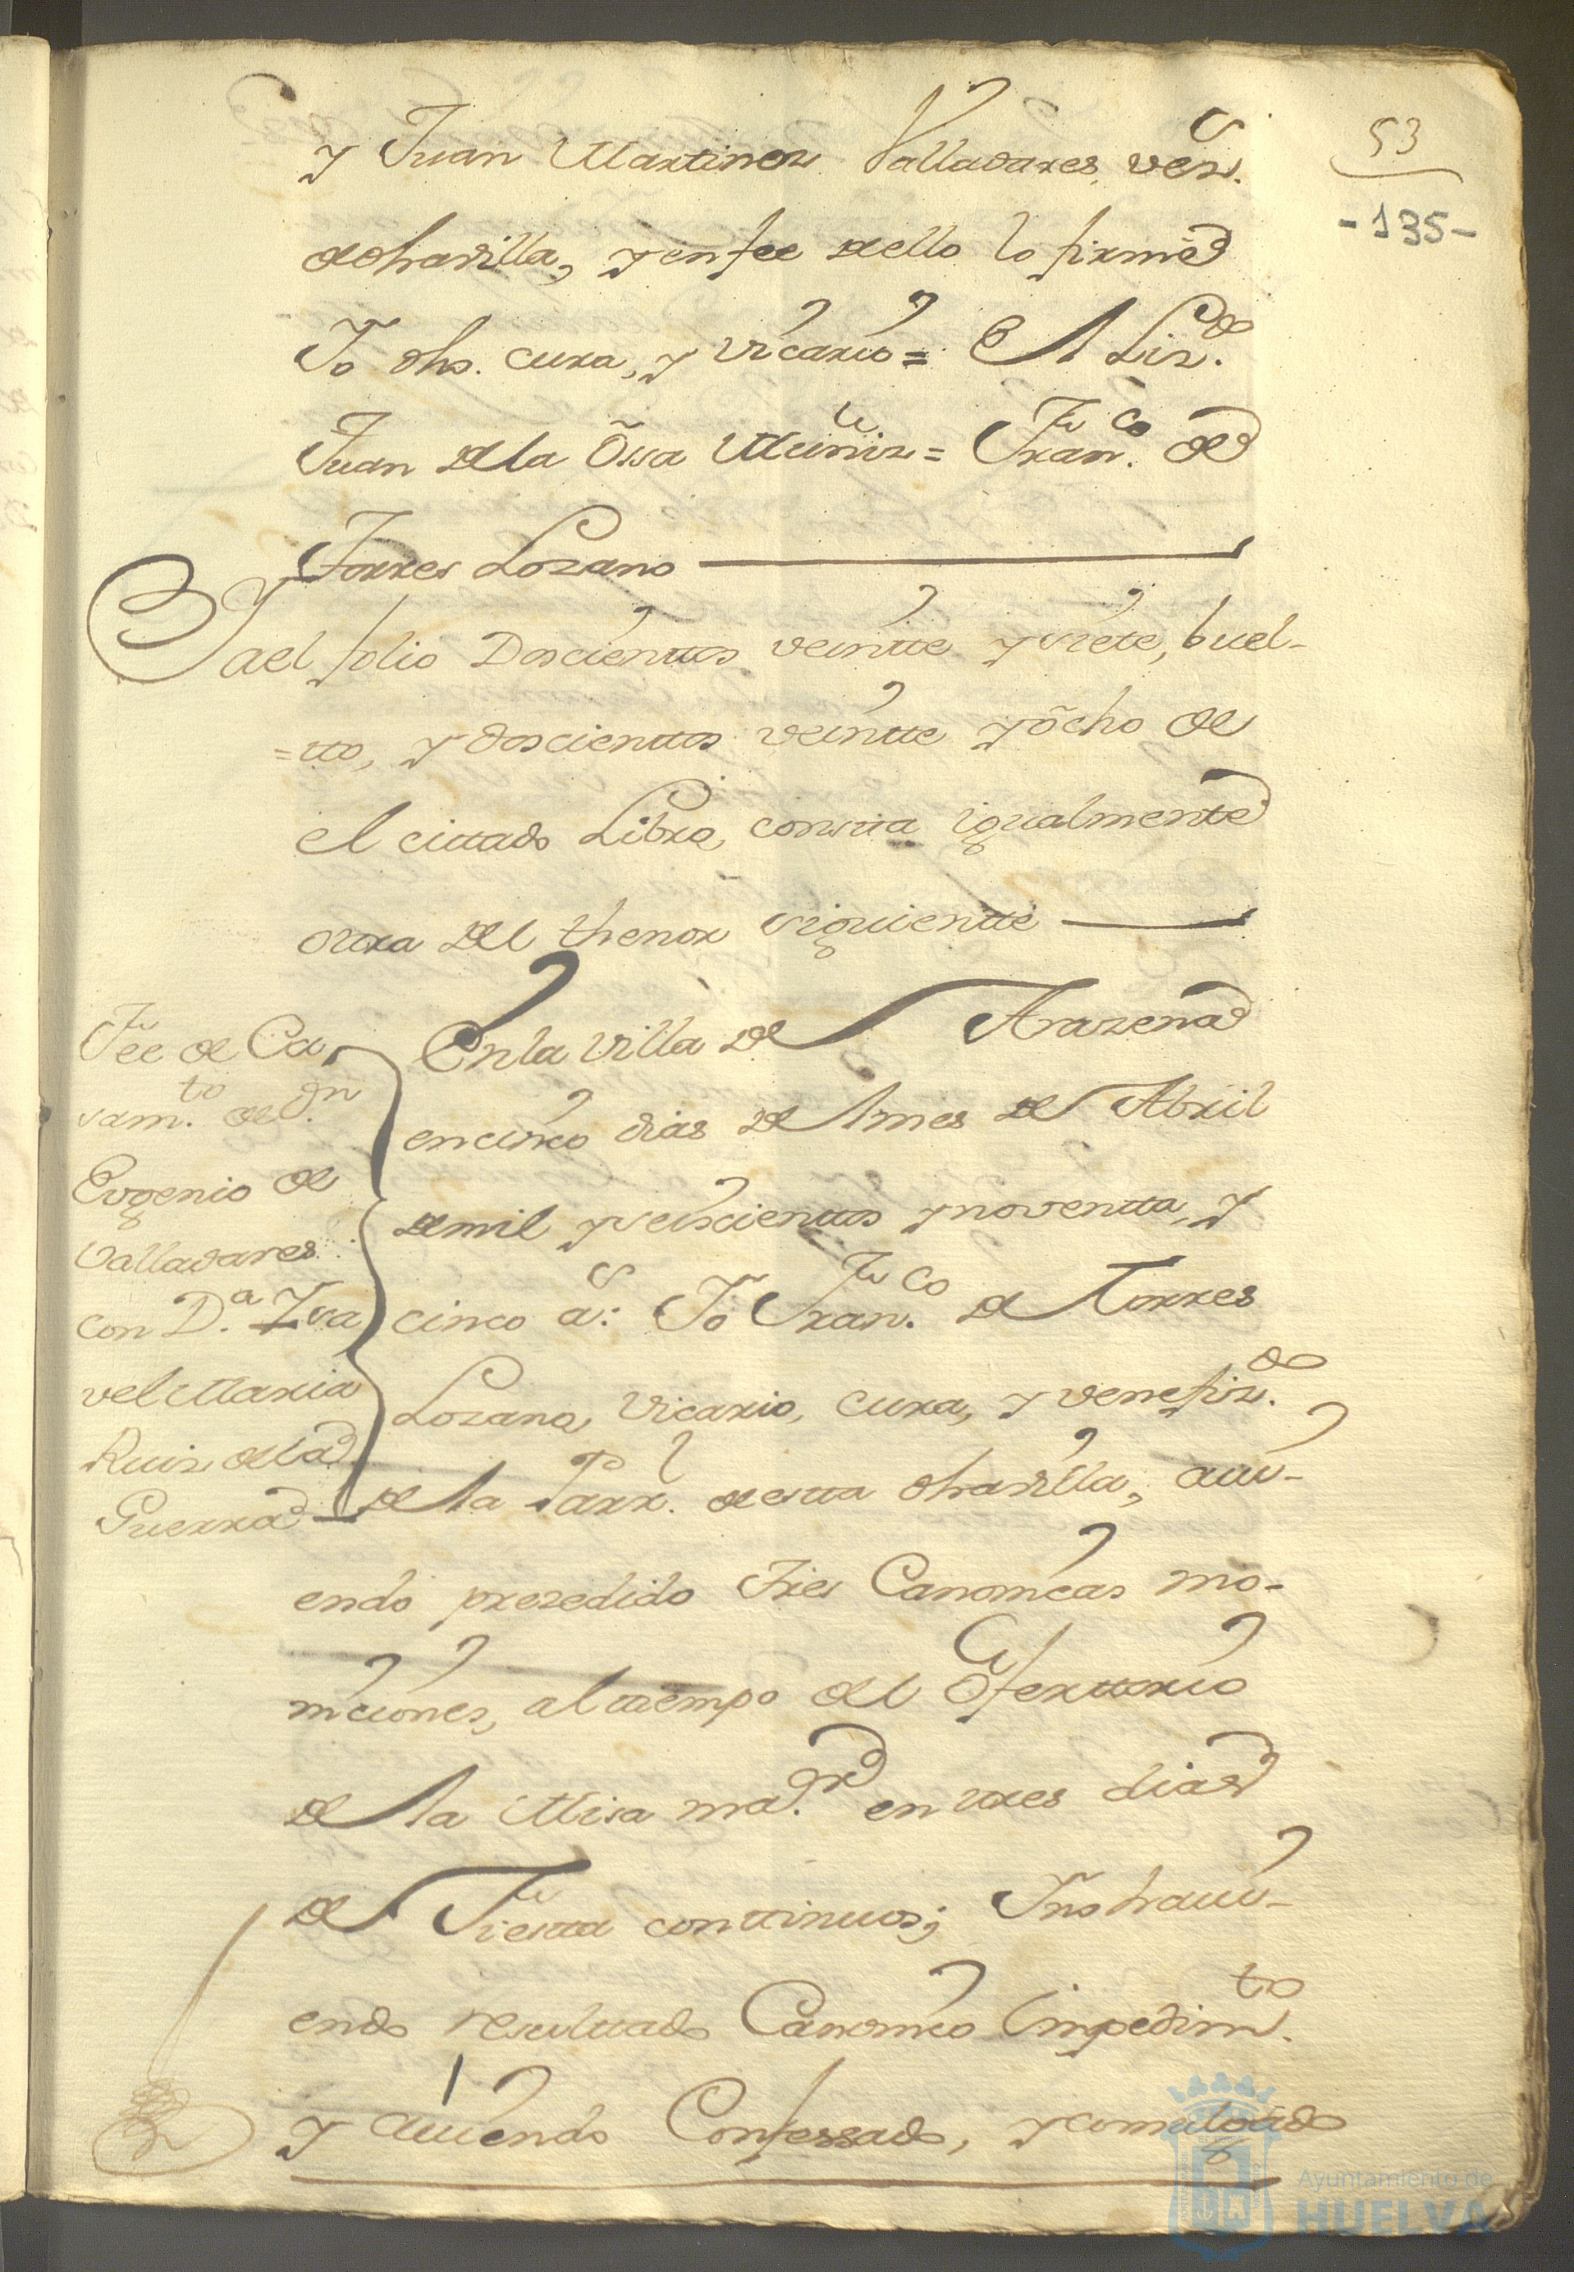 53
-135-
y Juan Martinez Valladares, vez.s
de dha villa, y en fee dello lo firmé
Yo dho. cura, y Vicario = El Liz.do
Juan de la Ossa Muñiz = Fran.co de
Torres Lozano
Y ael folio Doscienttos veintte y siete, buel-
=tto, y doscienttos veintte y ôcho de
el cittado Libro, constta igualmente
ottra del thenor siguientte
Fee de Ca
sam.to de D.n
Eugenio de
Valladares
con D.a Ysa
vel Maria
Ruiz de la
Guerra
En la Villa de Arazena
en cinco dias del mes de Abril
de mil y seiscienttos y noventta, y
cinco a.s: Yo Fran.co de Torres
Lozano, Vicario, cura, y venefiz.do
de la Parr.l de estta dha villa, avi-
endo prezedido Tres Canonicas mo-
niciones, al tiempo del Oferttorio
de la Misa ma.or en tres dias
de Fiestta conttinuos; Y no havi-
endo resulttado Canonico Impedim.to
y aviendo Confessado, y comulgado
Ayuntamiento de
HUELVA